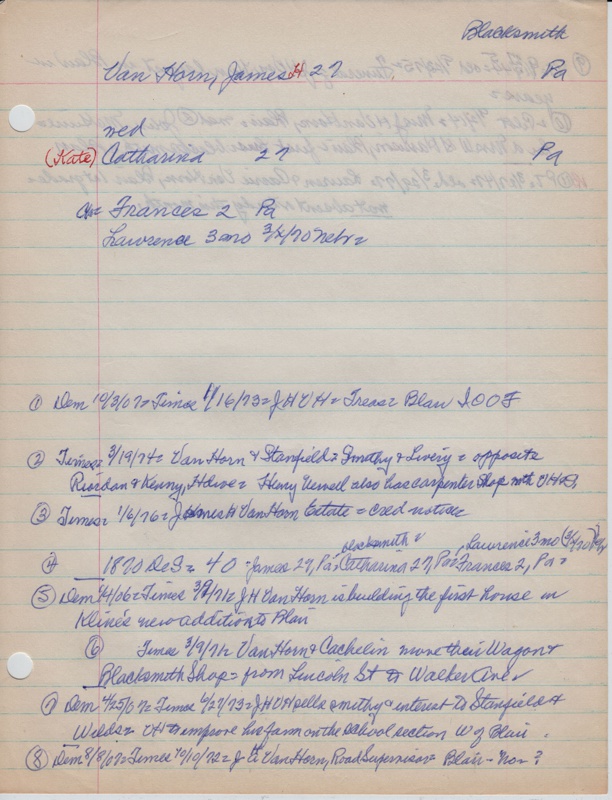 Blacksmith
Van Horn, James H 27 Pa
wed
(Kate) Catharina 27 Pa
Ch= Frances 2 Pa
Lawrence 3 mo 3/x/70 Nebr=
① Dem 10/3/07= Times 1/16/73= JHVH= Treas= Blair IOOF
② Times= 3/19/74= Van Horn & Stanfield= Smithy & Livery= opposite
Riordan & Kenny, Hdwe= Henry also has carpenter shop with VH&S,
③ Times= 1/6/76= James H Van Horn Estate= cred notice
blacksmith= , Lawrence 3 mo
④ 1870 DeS= 40 - James 27, Pa= Catharina 27, Pa= Frances 2, Pa=
⑤ Dem /4/06= Times 3/9/71= JH Van Horn is building the first house in
Kline's new addition to Blair
⑥ Times 3/9/71= Van Horn & Cachelin move their Wagon &
Blacksmith Shop= from Lincoln St to Walker Ave=
⑦ Dem 4/25/07= Times 4/27/73= JHVH sells smithy interest to Stanfield &
Wilds= VH to improve his farm on the school section W of Blair.
⑧ Dem 8/8/07= Times 10/10/72= J H Van Horn, Road Supervisor= Blair - non?